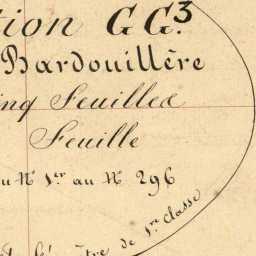 tion G G.3
Bardouillère
inq Feuilles
Feuille
du N° 1er au N° 296
tre de 1re Classe